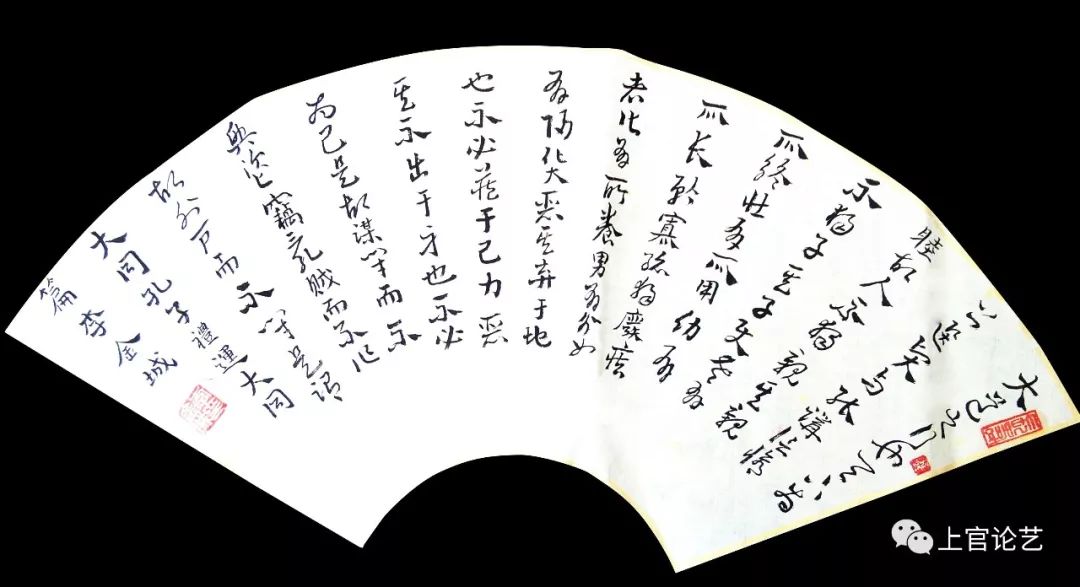 大道之行也天下为
公選贤与能講信修
睦故人不獨親其親
不獨子其子使老有
所終壮有所用幼有
所长矜寡孤獨廢疾
者皆有所養男有分女
有归货恶其弃于地
也不必藏于己力恶
其不出于身也不必
为己是故谋闭而不
興盗竊乱贼而不作
故外户而不闭是谓
大同孔子禮運大同
篇李金城
上官论艺